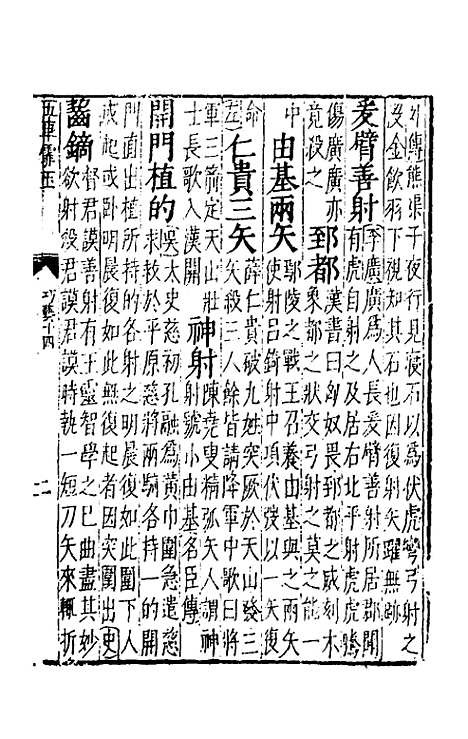 外傳熊渠子夜行見寢石以為伏虎彎弓射之
沒金飲羽下視知其石也因復射矢躍無跡
爰臂善射李廣廣為人長爰臂善射所居郡聞
有虎自射之及居右北平射虎虎騰
傷廣廣亦
竟殺之
郅都漢書曰匈奴畏郅都之威刻木
象都之狀交弓射之莫之能一
中
由基兩矢鄢陵之戰王召養由基與之兩矢
使射呂錡射中項伏弢以一矢復
命
左
仁貴三矢薛仁貴破九姓突厥於天山發三
矢殺三人餘皆請降軍中歌曰將
軍三箭定天山壯
士長歌入漢關
神射陳堯叟精弧矢人謂神
射號小由基名臣傳
開門植的吳太史慈初孔融為黃巾圍急遣慈
求救於平原慈將兩騎各持一的開
門直出植所持的各射之明晨復如此圍下人
或起或臥明晨復如此無復起者因突圍出史
齧鏑督君謨善射有王靈智學之已曲盡其妙
欲射殺君謨君謨時執一短刀矢來輒折
五車霏玉
巧藝十四
二